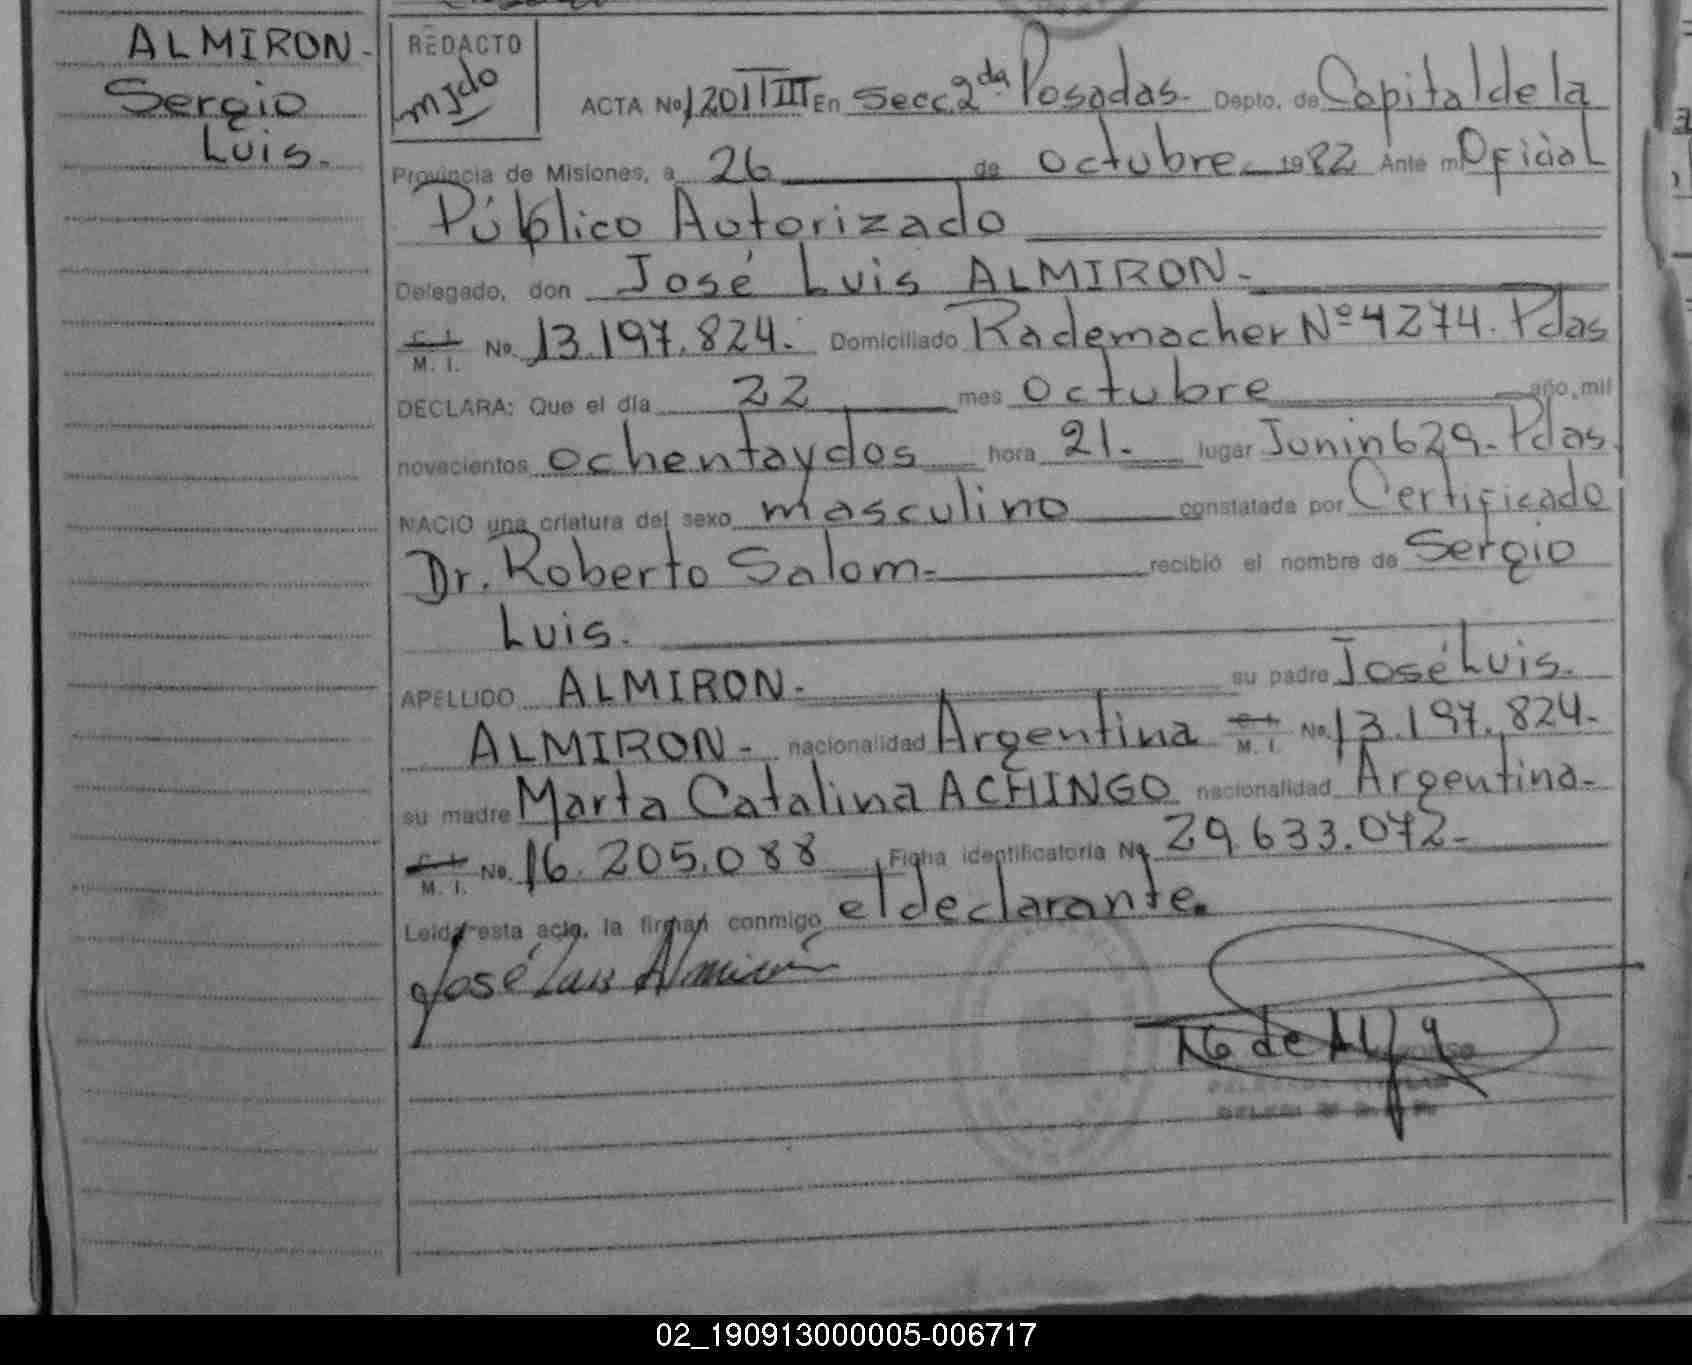 ALMIRON-
Sergio
Luis.
REDACTO
mjdo
ACTA No 1201 III En Secc. 2da Posadas- Depto. de Capital de la
Provincia de Misiones, a 26 de octubre 1982 Ante mi Oficial
Público Autorizado
Delegado, don José Luis ALMIRON-
C. I. M. I. No. 13.197.824. Domiciliado Rademacher Nº 4274. Pdas
DECLARA: Que el día 22 mes octubre año, mil
novecientos ochentaydos hora 21. lugar Junin 629- Pdas.
NACIO una criatura del sexo masculino constatada por Certificado
Dr. Roberto Salom- recibió el nombre de Sergio
Luis.
APELLIDO ALMIRON- su padre José Luis-
ALMIRON- nacionalidad Argentina C. I. M. I. No. 13.197.824-
su madre Marta Catalina ACHINGO nacionalidad Argentina-
C. I. M. I. No. 16.205.088 Ficha identificatoria No 29.633.072-
Leída esta acta, la firman conmigo el declarante.
José Luis Almirón
DELEGADA TITULAR
02_190913000005-006717